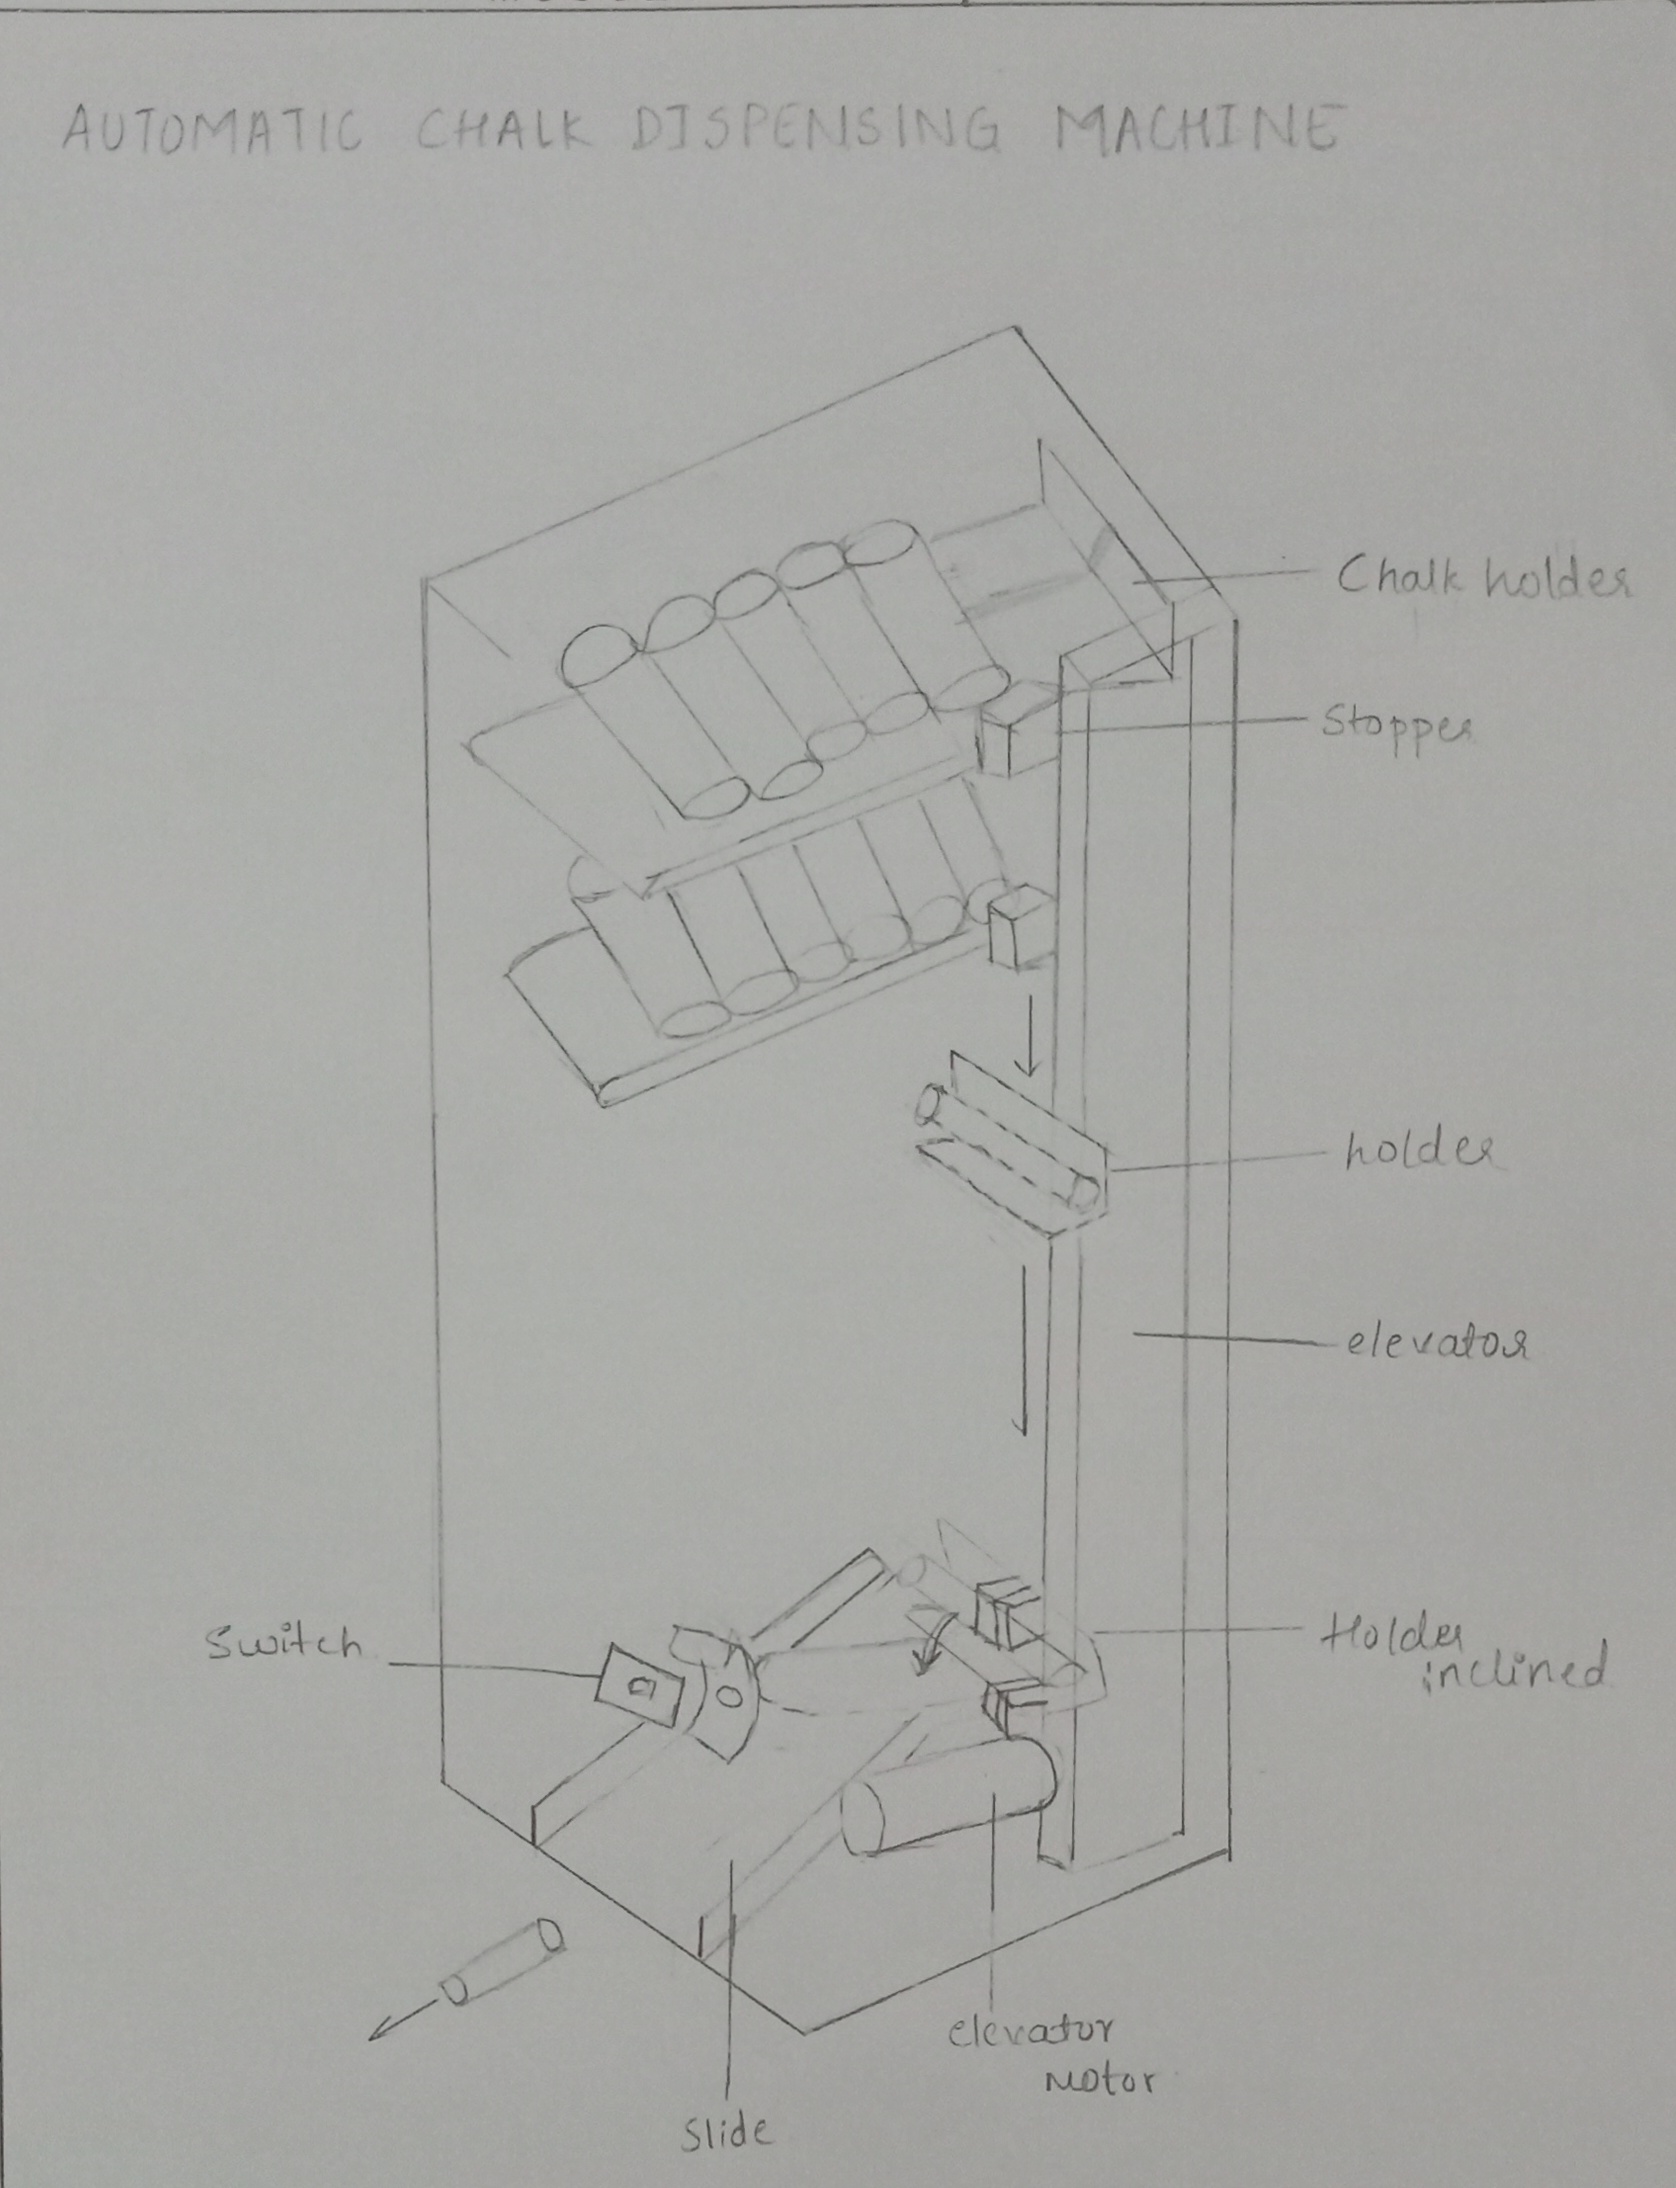 AUTOMATIC CHALK DISPENSING MACHINE
Chalk holder
Stopper
holder
elevator
Switch
Holder
inclined
elevator
motor
Slide